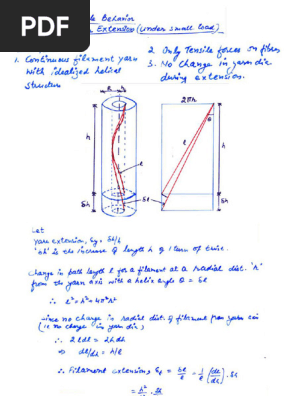 PDF
le Behavior
Extension (under small load)
1. Continuous filament yarn
with idealized helical
structure
2. Only Tensile forces on fibres
3. No change in yarn dia
during extension.
R
r
2πr
θ
h
l
h
l
δh
δl
δh
Let
yarn extension, εy = δh/h
'δh' is the increase of length h of 1 turn of twist.
Change in path length l for a filament at a radial dist. 'r'
from the yarn axis with a helix angle θ = δl
∴ l² = h² + 4π²r²
since no change in radial dist. of filament from yarn axis
(i.e. no change in yarn dia)
∴ 2ldl = 2hdh
⇒ dl/dh = h/l
∴ Filament extension, εf = δl/l = 1/l (dl/dh) . δh
= h²/ . δh